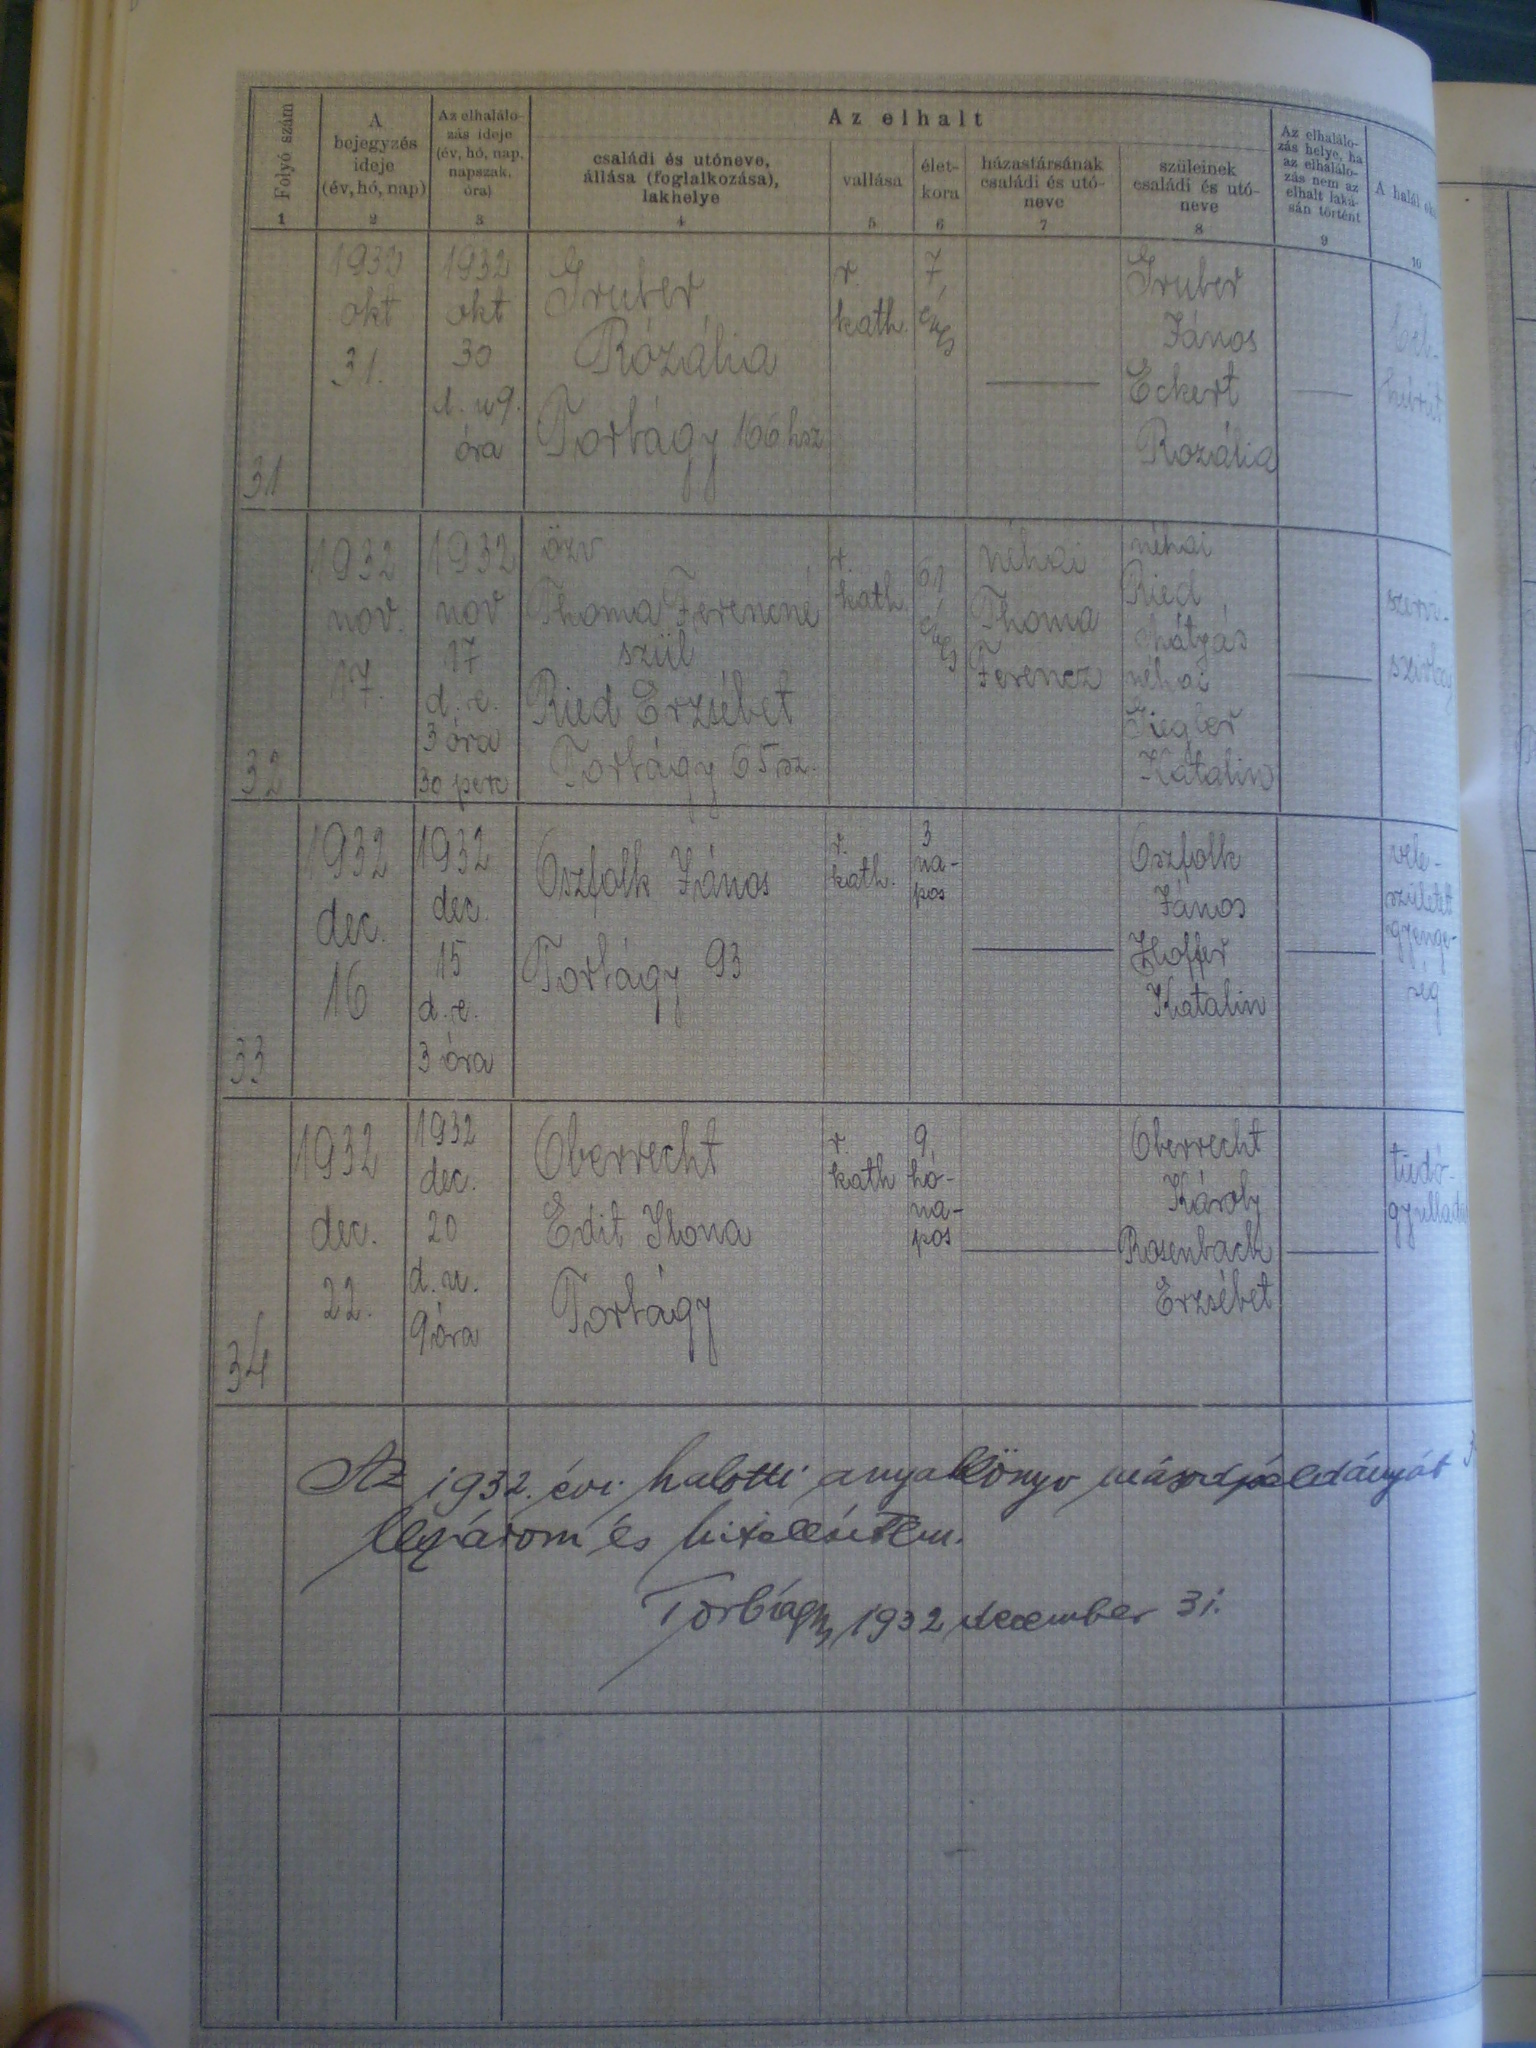 Az elhalt
Folyó szám
1
A
bejegyzés
ideje
(év, hó, nap)
2
Az elhalálo-
zás ideje
(év, hó, nap,
napszak,
óra)
3
családi és utóneve,
állása (foglalkozása),
lakhelye
4
vallása
5
élet-
kora
6
házastársának
családi és utó-
neve
7
szüleinek
családi és utó-
neve
8
Az elhalálo-
zás helye, ha
az elhalálo-
zás nem az
elhalt laká-
sán történt
9
A halál
10
31
1932
okt
31.
1932
okt
30
d. u 9.
óra
Gruber
Rózália
Torbágy 166 hsz
r.
kath.
7
éves
Gruber
János
Eckert
Rozália
32
1932
nov.
17.
1932
nov
17
d. e.
3 óra
30 perc
özv
Thoma Ferencné
szül
Ried Erzsébet
Torbágy 65 sz.
r.
kath.
61
éves
néhai
Thoma
Ferencz
néhai
Ried
Mátyás
néhai
Ziegler
Katalin
szervi-
33
1932
dec.
16
1932
dec.
15
d. e.
3 óra
Oszfolk János
Torbágy 93
r.
kath.
3
na-
pos
Oszfolk
János
Hoffer
Katalin
vele-
született
gyenge-
ség
34
1932
dec.
22.
1932
dec.
20
d. u.
9 óra
Oberrecht
Edit Ilona
Torbágy
r.
kath
9
hó-
na-
pos
Oberrecht
Károly
Rosenbach
Erzsébet
tüdő-
gyulladás
Az 1932. évi halotti anyakönyv másodpéldányát
lezárom és hitelesítem.
Torbágy, 1932 december 31.